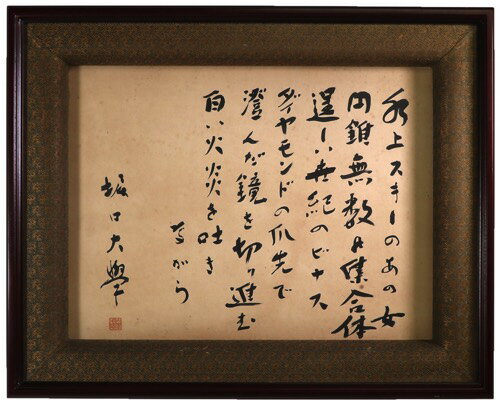 水上スキーのあの女
円錐無数の集合体
逞しい世紀のビナス
ダイヤモンドの爪先で
澄んだ鏡を切り進む
白い火炎を吐き
ながら
堀口大學